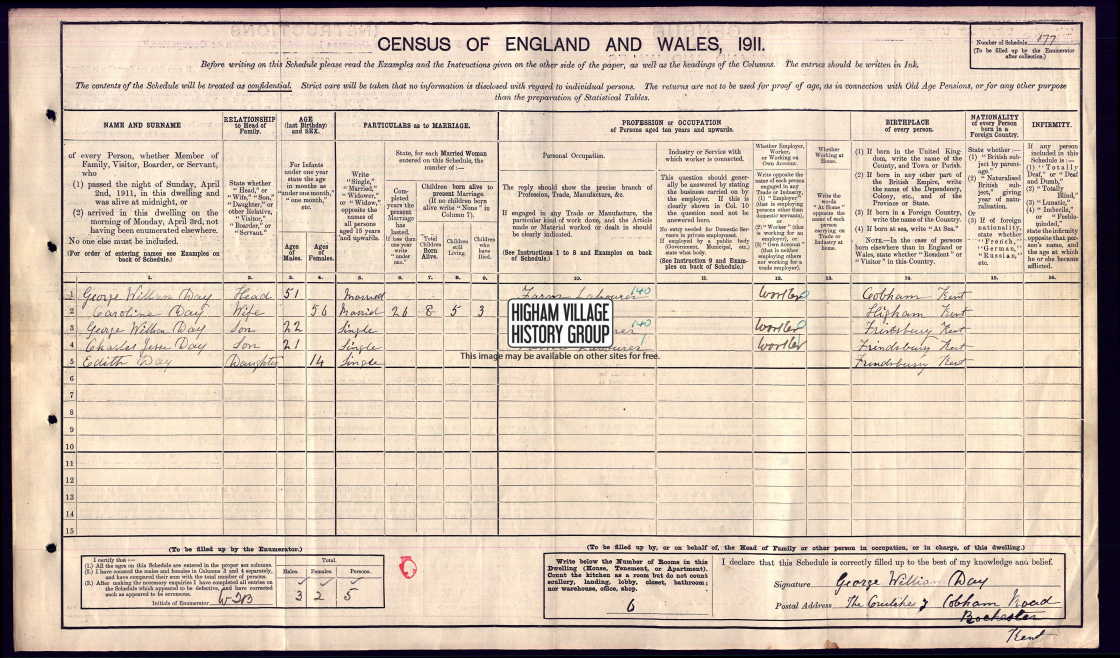 CENSUS OF ENGLAND AND WALES, 1911.
Number of Schedule 177
(To be filled up by the Enumerator
after collection.)
Before writing on this Schedule please read the Examples and the Instructions given on the other side of the paper, as well as the headings of the Columns. The entries should be written in Ink.
The contents of the Schedule will be treated as confidential. Strict care will be taken that no information is disclosed with regard to individual persons. The returns are not to be used for proof of age, as in connection with Old Age Pensions, or for any other purpose
than the preparation of Statistical Tables.
NAME AND SURNAME
of every Person, whether Member of
Family, Visitor, Boarder, or Servant,
who
(1) passed the night of Sunday, April
2nd, 1911, in this dwelling and
was alive at midnight, or
(2) arrived in this dwelling on the
morning of Monday, April 3rd, not
having been enumerated elsewhere.
No one else must be included.
(For order of entering names see Examples on
back of Schedule.)
RELATIONSHIP
to Head of
Family.
State whether
"Head," or
"Wife," "Son,"
"Daughter," or
other Relative,
"Visitor,"
"Boarder," or
"Servant."
AGE
(last Birthday)
and SEX.
For Infants
under one year
state the age
in months as
"under one month,"
"one month,"
etc.
Ages
of
Males.
Ages
of
Females.
PARTICULARS as to MARRIAGE.
Write
"Single,"
"Married,"
"Widower,"
or "Widow,"
opposite the
names of
all persons
aged 15 years
and upwards.
State, for each Married Woman
entered on this Schedule, the
number of:—
Completed
years the
present
Marriage
has
lasted.
If less than
one year
write
"under
one."
Children born alive to
present Marriage.
(If no children born
alive write "None" in
Column 7).
Total
Children
Born
Alive.
Children
still
Living.
Children
who
have
Died.
PROFESSION or OCCUPATION
of Persons aged ten years and upwards.
Personal Occupation.
The reply should show the precise branch of
Profession, Trade, Manufacture, &c.
If engaged in any Trade or Manufacture, the
particular kind of work done, and the Article
made or Material worked or dealt in should
be clearly indicated.
(See Instructions 1 to 8 and Examples on back
of Schedule.)
Industry or Service with
which worker is connected.
This question should generally
be answered by stating
the business carried on by
the employer. If this is
clearly shown in Col. 10
the question need not be
answered here.
No entry needed for Domestic Servants
in private employment.
If employed by a public body
(Government, Municipal, etc.)
state what body.
(See Instructions 9 and Examples
on back of Schedule.)
Whether Employer,
Worker,
or Working on
Own Account.
Write opposite the
name of each person
engaged in any
Trade or Industry,
(1) "Employer"
(that is employing
persons other than
domestic servants),
or
(2) "Worker" (that
is working for an
employer), or
(3) "Own Account"
(that is neither
employing others
nor working for a
trade employer).
Whether
Working at
Home.
Write the
words
"At Home"
opposite the
name of each
person
carrying on
Trade or
Industry at
home.
BIRTHPLACE
of every person.
(1) If born in the United Kingdom,
write the name of the
County, and Town or Parish.
(2) If born in any other part of
the British Empire, write
the name of the Dependency,
Colony, etc., and of the
Province or State.
(3) If born in a Foreign Country,
write the name of the Country.
(4) If born at sea, write "At Sea."
NOTE.—In the case of persons
born elsewhere than in England or
Wales, state whether "Resident" or
"Visitor" in this Country.
NATIONALITY
of every Person
born in a
Foreign Country.
State whether:—
(1) "British subject
by parentage."
(2) "Naturalised
British subject,"
giving
year of naturalisation.
Or
(3) If of foreign
nationality,
state whether
"French,"
"German,"
"Russian,"
etc.
INFIRMITY.
If any person
included in this
Schedule is:—
(1) "Totally
Deaf," or "Deaf
and Dumb,"
(2) "Totally
Blind,"
(3) "Lunatic,"
(4) "Imbecile,"
or "Feeble-minded,"
state the infirmity
opposite that person's
name, and
the age at which
he or she became
afflicted.
1. 2. 3. 4. 5. 6. 7. 8. 9. 10. 11. 12. 13. 14. 15. 16.
1 George William Day Head 51 Married Farm Labourer 140 Worker Cobham Kent
2 Caroline Day Wife 56 Married 26 8 5 3 Higham Kent
3 George William Day Son 22 Single 140 Worker Frindsbury Kent
4 Charles Jesse Day Son 21 Single Worker Frindsbury Kent
5 Edith Day Daughter 14 Single Frindsbury Kent
6
7
8
9
10
11
12
13
14
15
HIGHAM VILLAGE
HISTORY GROUP
This image may be available on other sites for free.
(To be filled up by the Enumerator.)
I certify that:—
(1.) All the ages on this Schedule are entered in the proper sex column.
(2.) I have counted the males and females in Columns 3 and 4 separately,
and have compared their sum with the total number of persons.
(3.) After making the necessary enquiries I have completed all entries on
the Schedule which appeared to be defective, and have corrected
such as appeared to be erroneous.
Initials of Enumerator
Total.
Males. Females. Persons.
3 2 5
(To be filled up by, or on behalf of, the Head of Family or other person in occupation, or in charge, of this dwelling.)
Write below the Number of Rooms in this
Dwelling (House, Tenement, or Apartment).
Count the kitchen as a room but do not count
scullery, landing, lobby, closet, bathroom;
nor warehouse, office, shop.
6
I declare that this Schedule is correctly filled up to the best of my knowledge and belief.
Signature George William Day
Postal Address The Cobham Road
Rochester
Kent